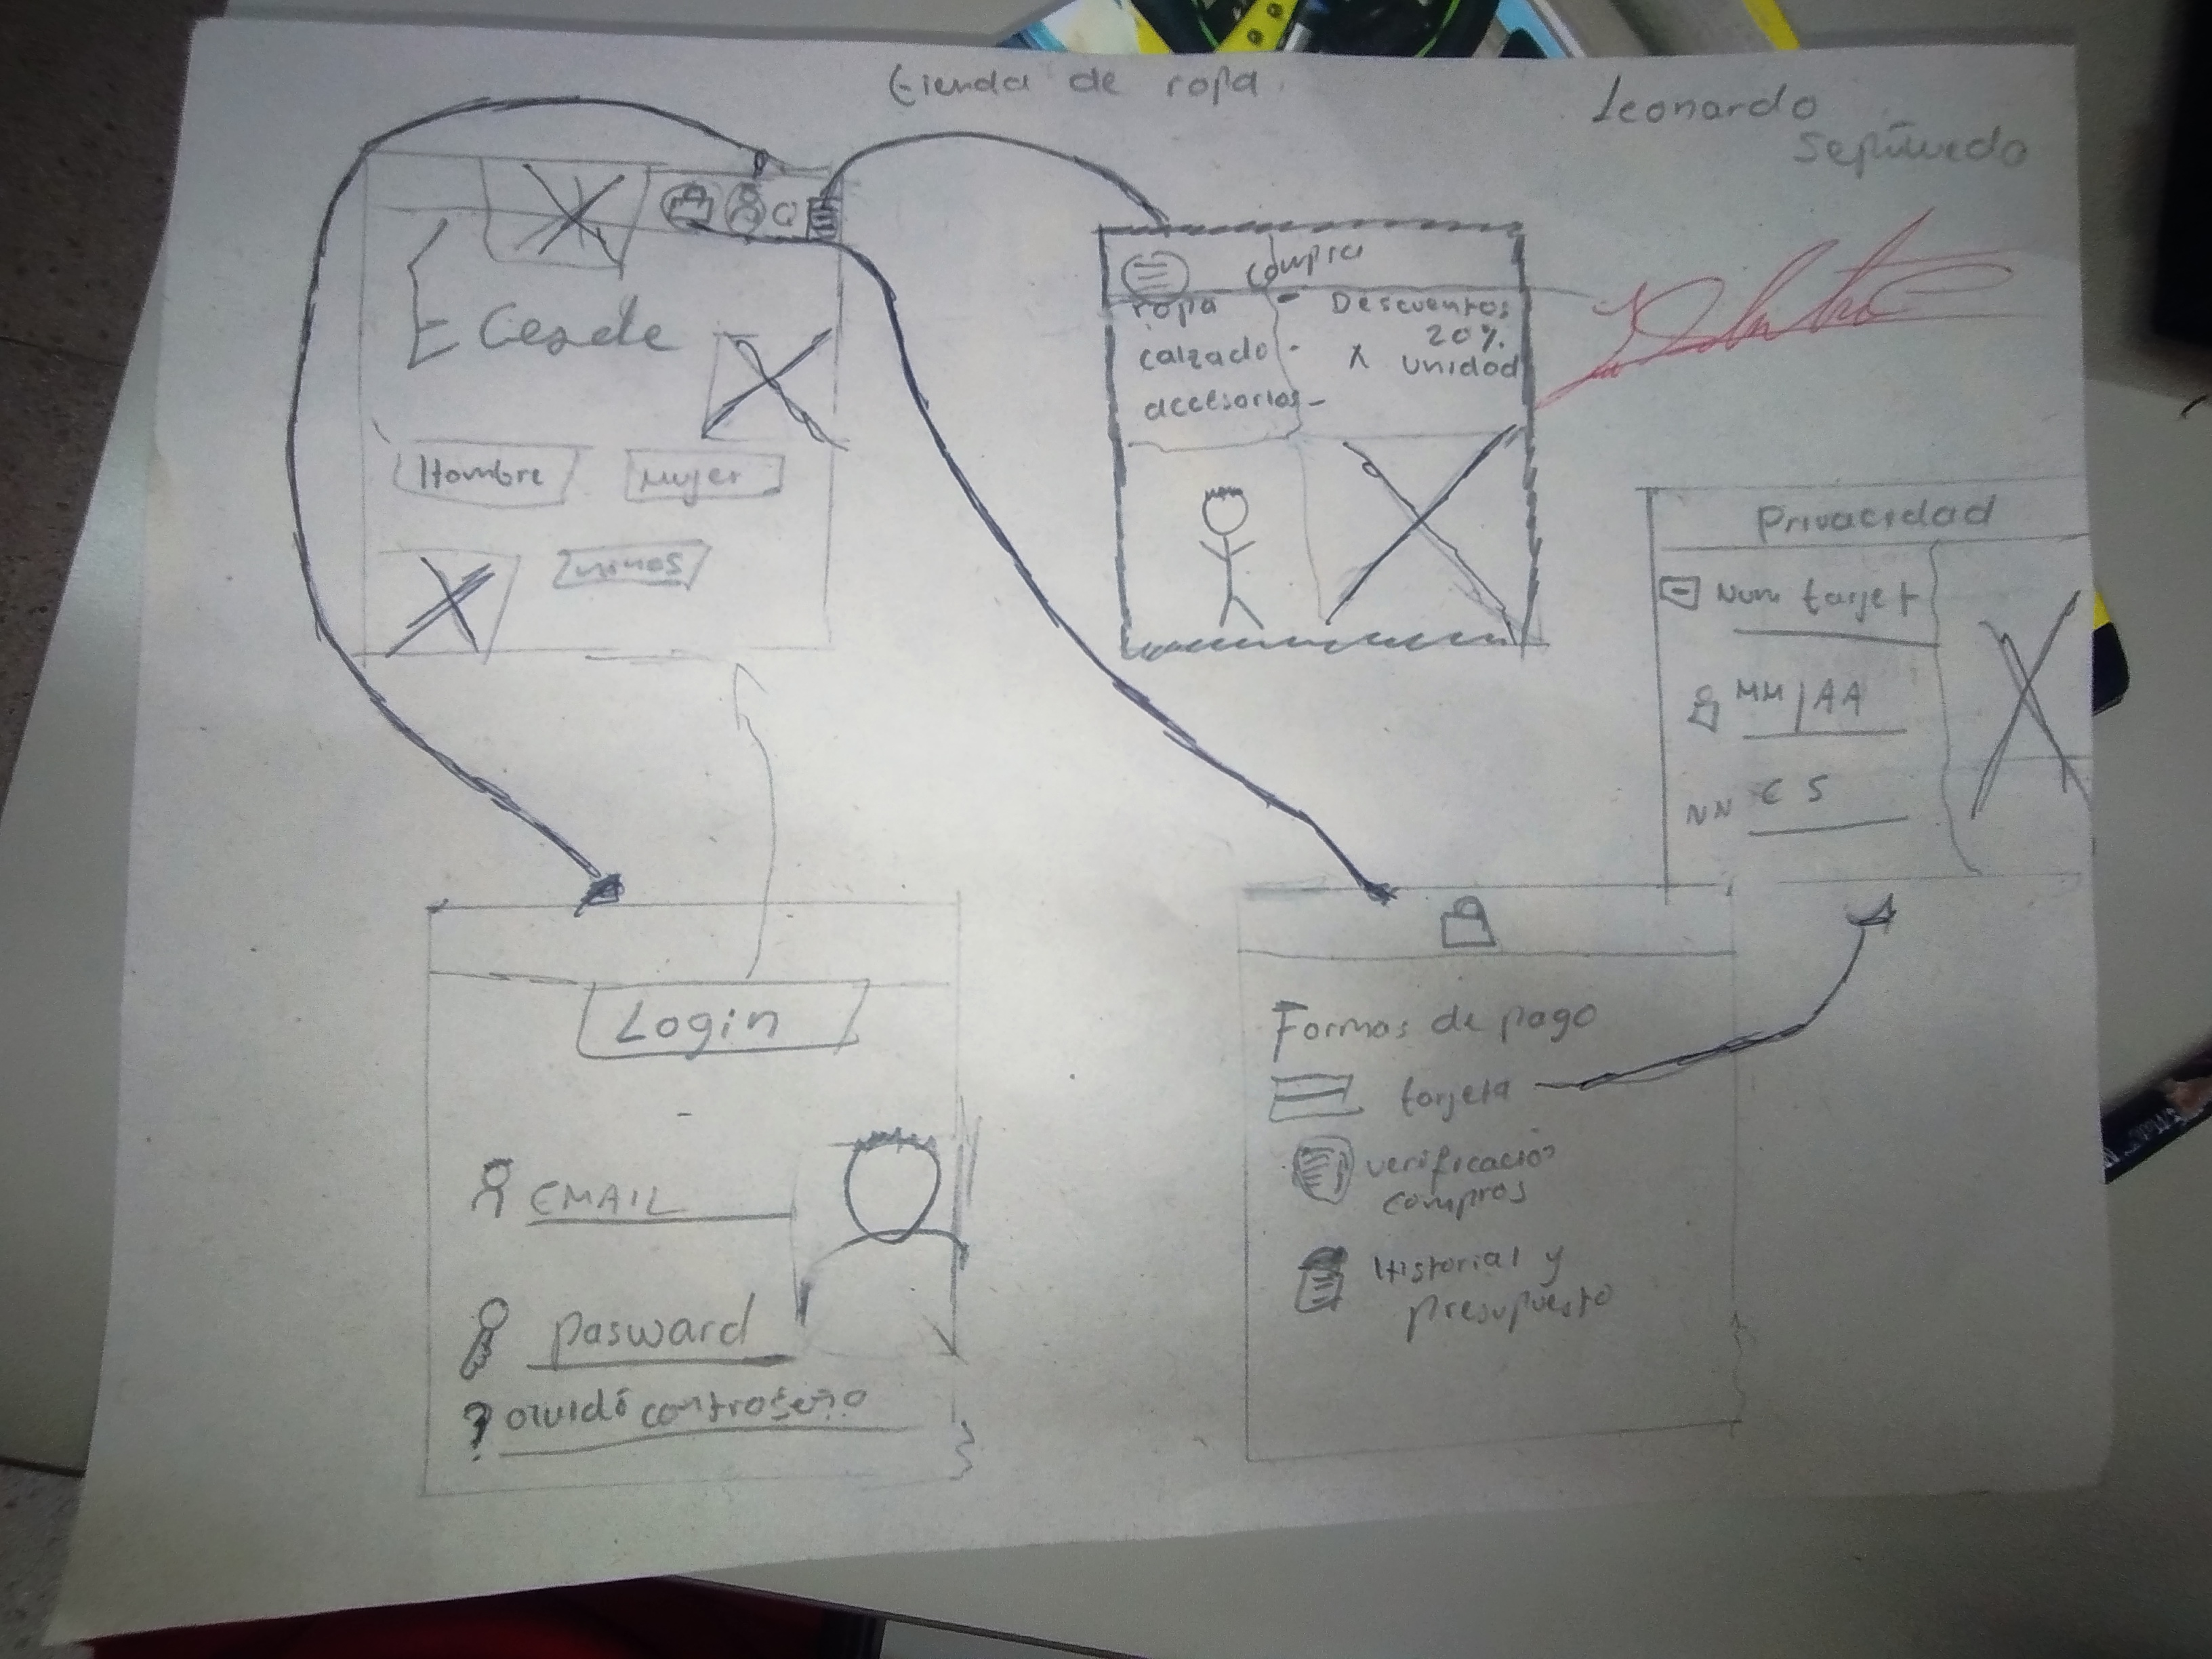 tienda de ropa.
Leonardo
Sepúlveda
Cesde
Hombre
Mujer
compra
ropa
calzado -
accesorios -
- Descuentos
20%
X unidad
Privacidad
Num tarjet
MM/AA
NN C S
Login
EMAIL
pasward
? olvidó contraseña
Formas de pago
tarjeta
verificacion
compras
Historial y
presupuesto